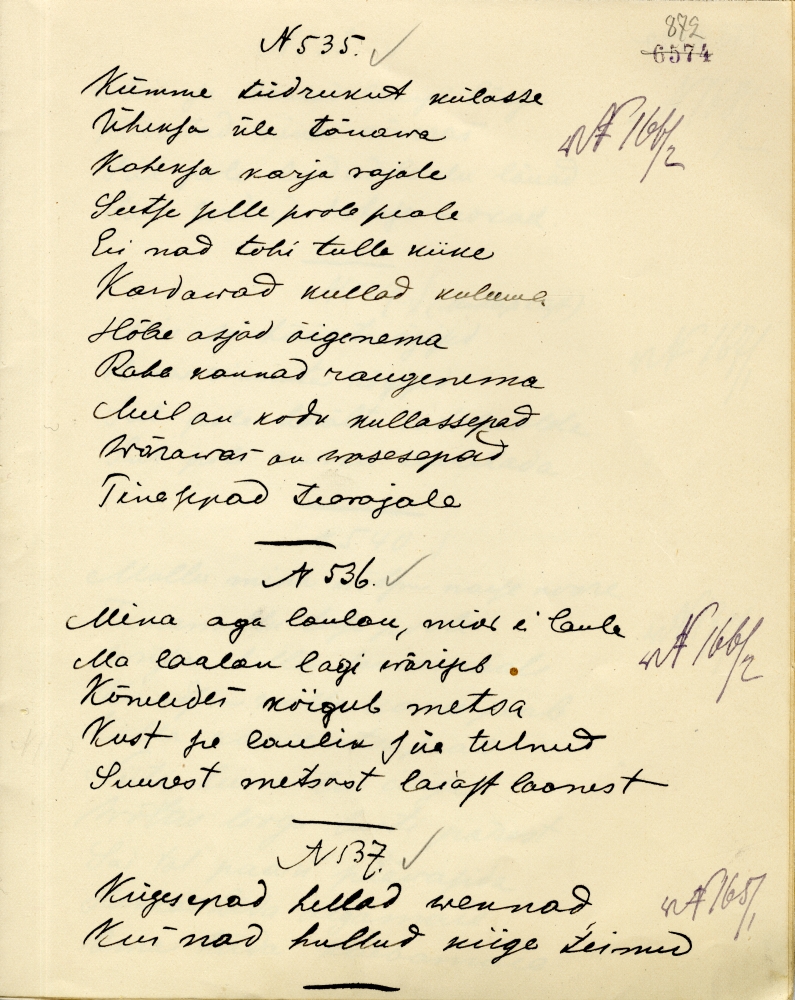 872
6574
N 535.
Kümme tüdrukut külasse
Üheksa üle tänawa
Kaheksa karja rajale
Seitse selle poole peale
Ei nad tohi tulla kiike
Kardawad kullad kuluma
Hõbe asjad õigenema
Raha kannad raugenema
Meil on kodu kullassepad
Wärawas on wasesepad
Tinasepad teerajale
N 166/2
N 536.
Mina aga laulan, miks ei laula
Ma laulan lagi wäriseb
Kõneledes kõigub metsa
Kust se laulik siia tulnud
Suurest metsast laiast laanest
N 166/2
N 537.
Kiigesepad hellad wennad
Kui nad hullud kiige teinud
N 165/1